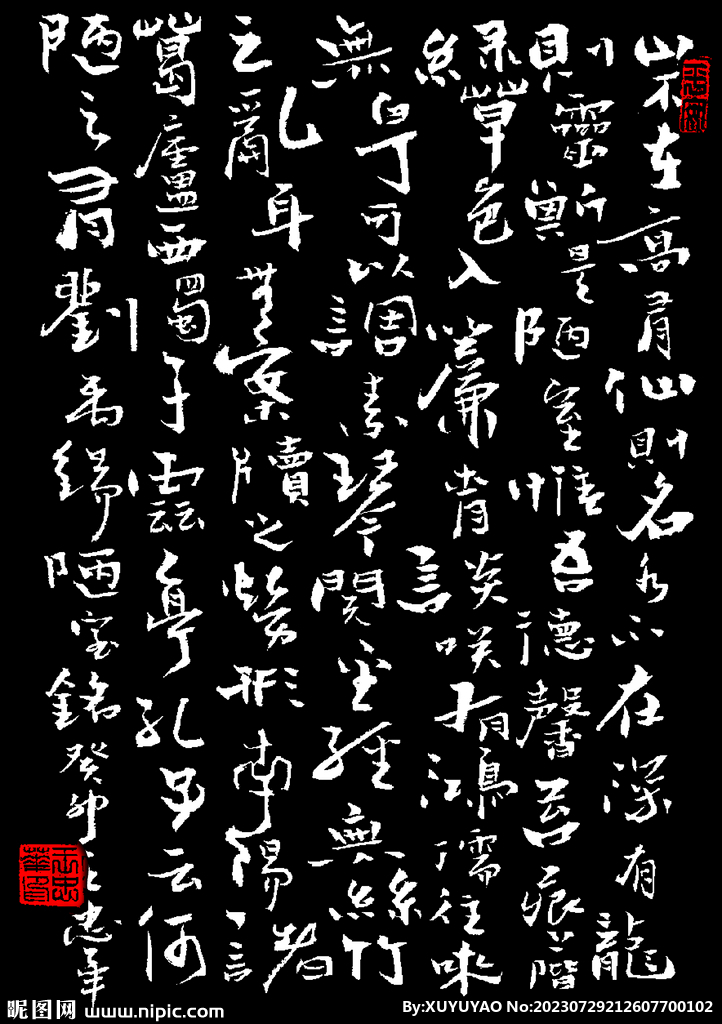 山不在高有仙則名水不在深有龍
則靈斯是陋室惟吾德馨苔痕上階
綠草色入簾青談笑有鴻儒往來
無白丁可以調素琴閱金經無絲竹
之亂耳無案牘之勞形南陽諸
葛廬西蜀子雲亭孔子云何
陋之有劉禹錫陋室銘癸卯王忠華
王忠華印
昵图网 www.nipic.com
By:XUYUYAO No:20230729212607700102